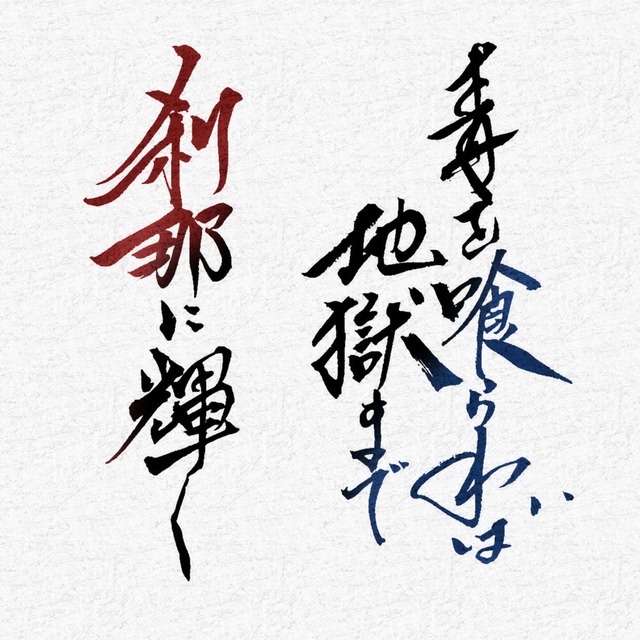 毒を喰らわば
地獄まで
刹那に輝く